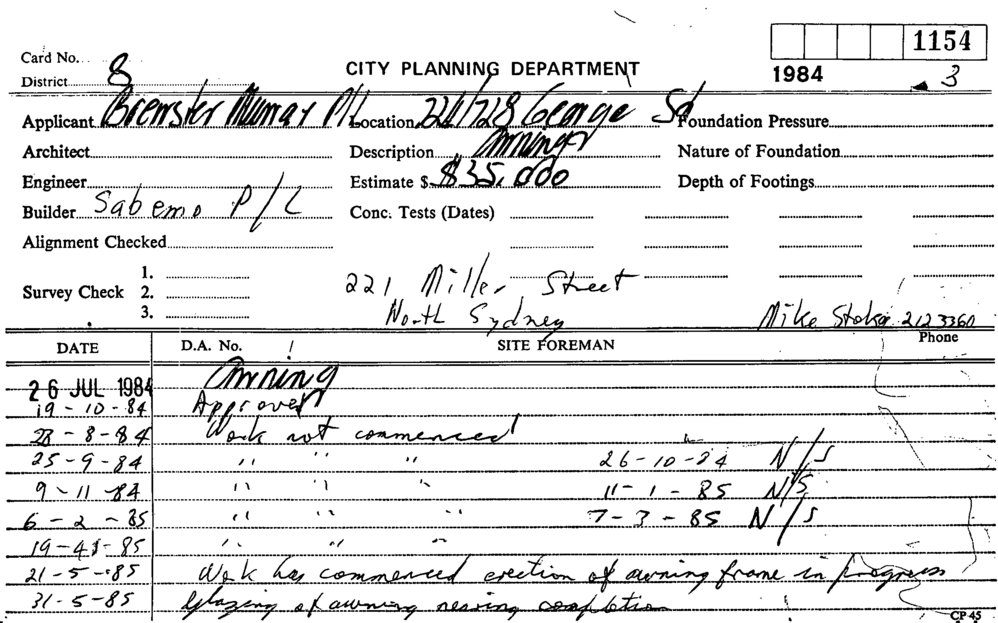 1154
Card No.
District 8
CITY PLANNING DEPARTMENT
1984 3
Applicant Brewster Murray P/L Location 724/728 George St Foundation Pressure
Architect Description Awning Nature of Foundation
Engineer Estimate $ $35,000 Depth of Footings
Builder Sabemo P/L Conc. Tests (Dates)
Alignment Checked
1.
Survey Check 2.
3.
221 Miller Street
North Sydney
Mike 212 3360
Phone
DATE D.A. No. SITE FOREMAN
26 JUL 1984 Awning
19-10-84 Approved
28-8-84 Work not commenced
25-9-84 " " " 26-10-84 N/S
9-11-84 " " " 11-1-85 N/S
6-2-85 " " " 7-3-85 N/S
19-4-85 " " "
21-5-85 Work has commenced erection of awning frame in progress
31-5-85 glazing of awning nearing completion
CP 45